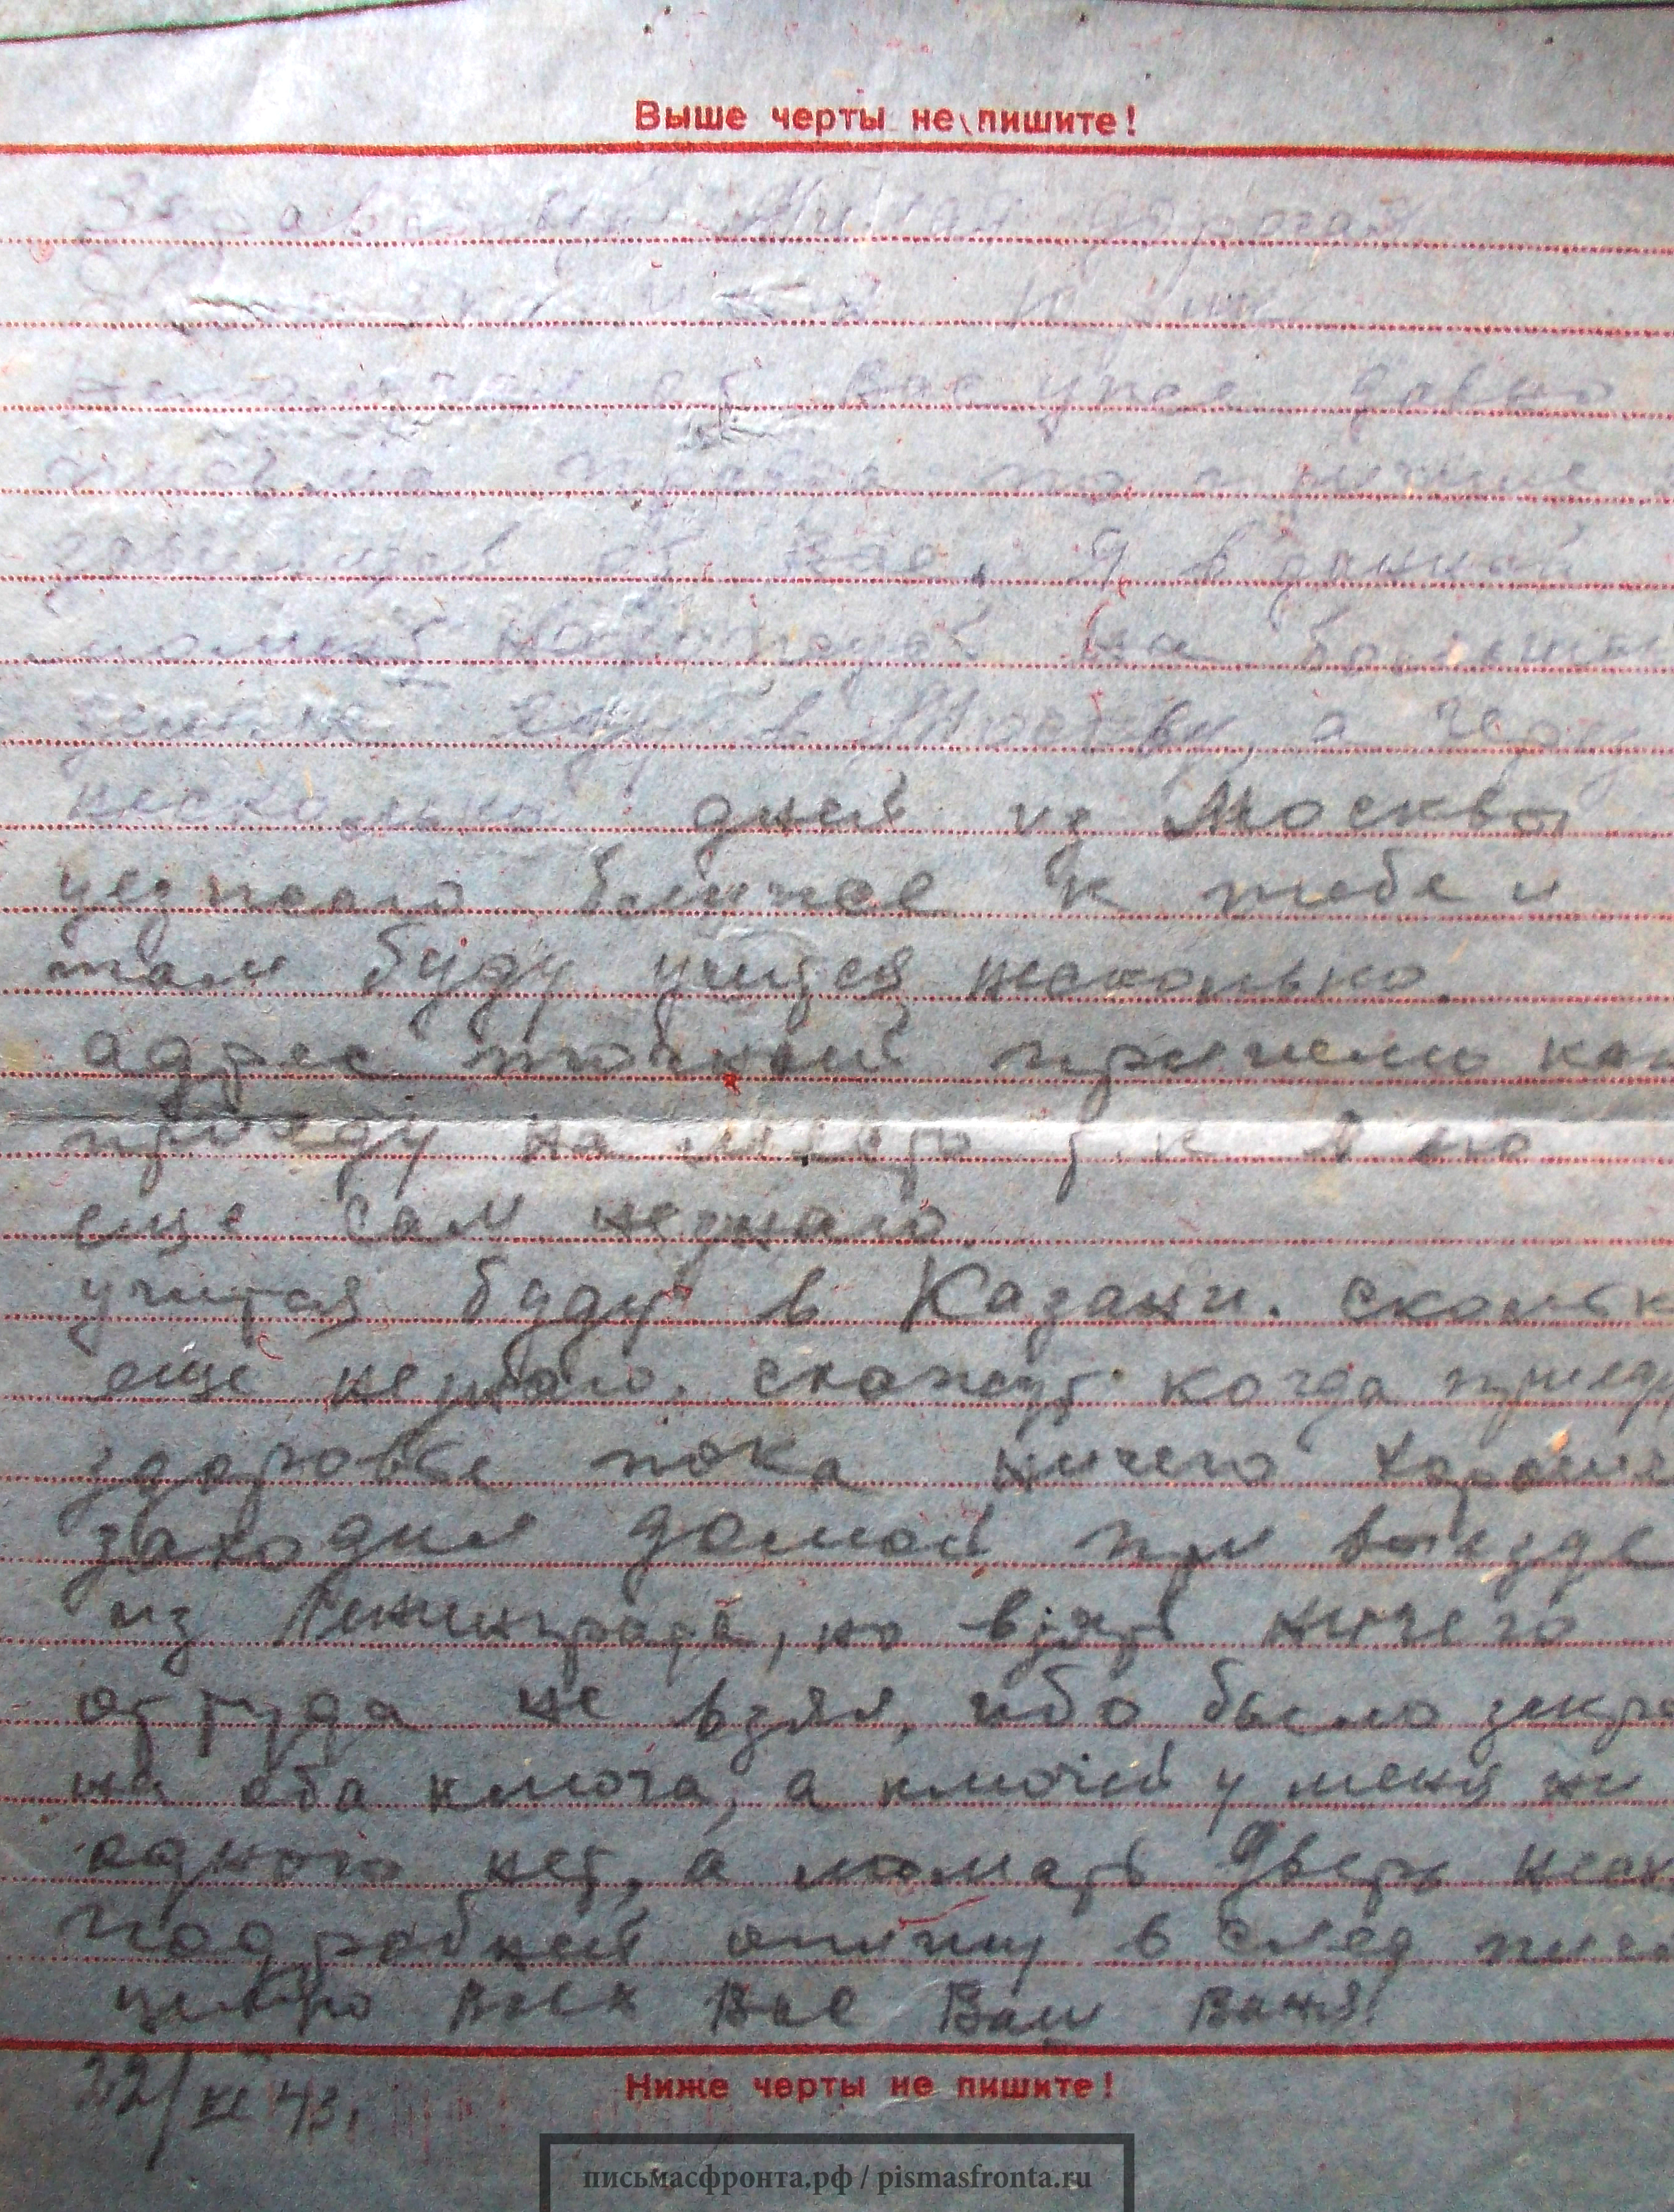 Выше черты не пишите!
Здравствуй Милая дорогая
об вас уже давно
письма
об Вас. Я в данный
момент нахожусь на
еду в Москву, а через
несколько дней из Москвы
уезжаю ближе к тебе и
там буду учится несколько.
адрес точный пришлю как
приеду на место т.к. я его
еще сам незнаю.
учится буду в Казани. сколько
еще незнаю. скажут когда приеду
здоровье пока ничего
заходил домой при выезде
из Ленинграда, но взять ничего
оттуда не взял, ибо было
на оба ключа, а ключей у меня ни
одного нет, а ломать дверь
подробней опишу в след
целую Всех Вас Ваш Ваня.
22/XI 43.
Ниже черты не пишите!
письмасфронта.рф / pismasfronta.ru